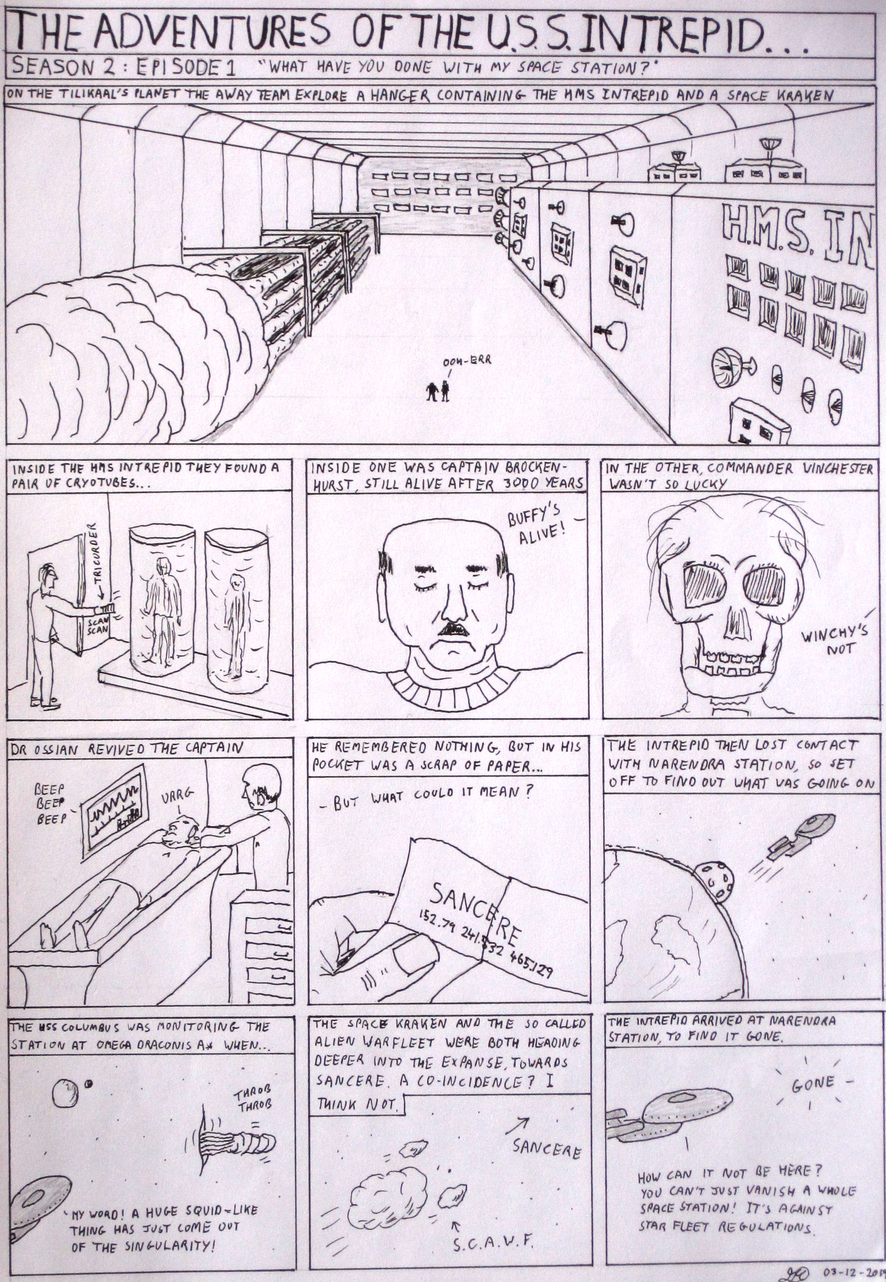 THE ADVENTURES OF THE U.S.S. INTREPID...
SEASON 2: EPISODE 1 "WHAT HAVE YOU DONE WITH MY SPACE STATION?"
ON THE TILIKAAL'S PLANET THE AWAY TEAM EXPLORE A HANGER CONTAINING THE HMS INTREPID AND A SPACE KRAKEN
H.M.S. IN
OOH-ERR
INSIDE THE HMS INTREPID THEY FOUND A
PAIR OF CRYOTUBES...
TRICURDER
SCAN
SCAN
INSIDE ONE WAS CAPTAIN BROCKEN-
HURST, STILL ALIVE AFTER 3000 YEARS
BUFFY'S
ALIVE!
IN THE OTHER, COMMANDER VINCHESTER
WASN'T SO LUCKY
WINCHY'S
NOT
DR OSSIAN REVIVED THE CAPTAIN
BEEP
BEEP
BEEP
URRG
HE REMEMBERED NOTHING, BUT IN HIS
POCKET WAS A SCRAP OF PAPER...
BUT WHAT COULD IT MEAN?
SANCERE
152.79 241.932 465.129
THE INTREPID THEN LOST CONTACT
WITH NARENDRA STATION, SO SET
OFF TO FIND OUT WHAT WAS GOING ON
THE USS COLUMBUS WAS MONITORING THE
STATION AT OMEGA DRACONIS A* WHEN...
THROB
THROB
MY WORD! A HUGE SQUID-LIKE
THING HAS JUST COME OUT
OF THE SINGULARITY!
THE SPACE KRAKEN AND THE SO CALLED
ALIEN WARFLEET WERE BOTH HEADING
DEEPER INTO THE EXPANSE, TOWARDS
SANCERE. A CO-INCIDENCE? I
THINK NOT.
SANCERE
S.C.A.W.F.
THE INTREPID ARRIVED AT NARENDRA
STATION, TO FIND IT GONE.
GONE
HOW CAN IT NOT BE HERE?
YOU CAN'T JUST VANISH A WHOLE
SPACE STATION! IT'S AGAINST
STAR FLEET REGULATIONS.
03-12-2019